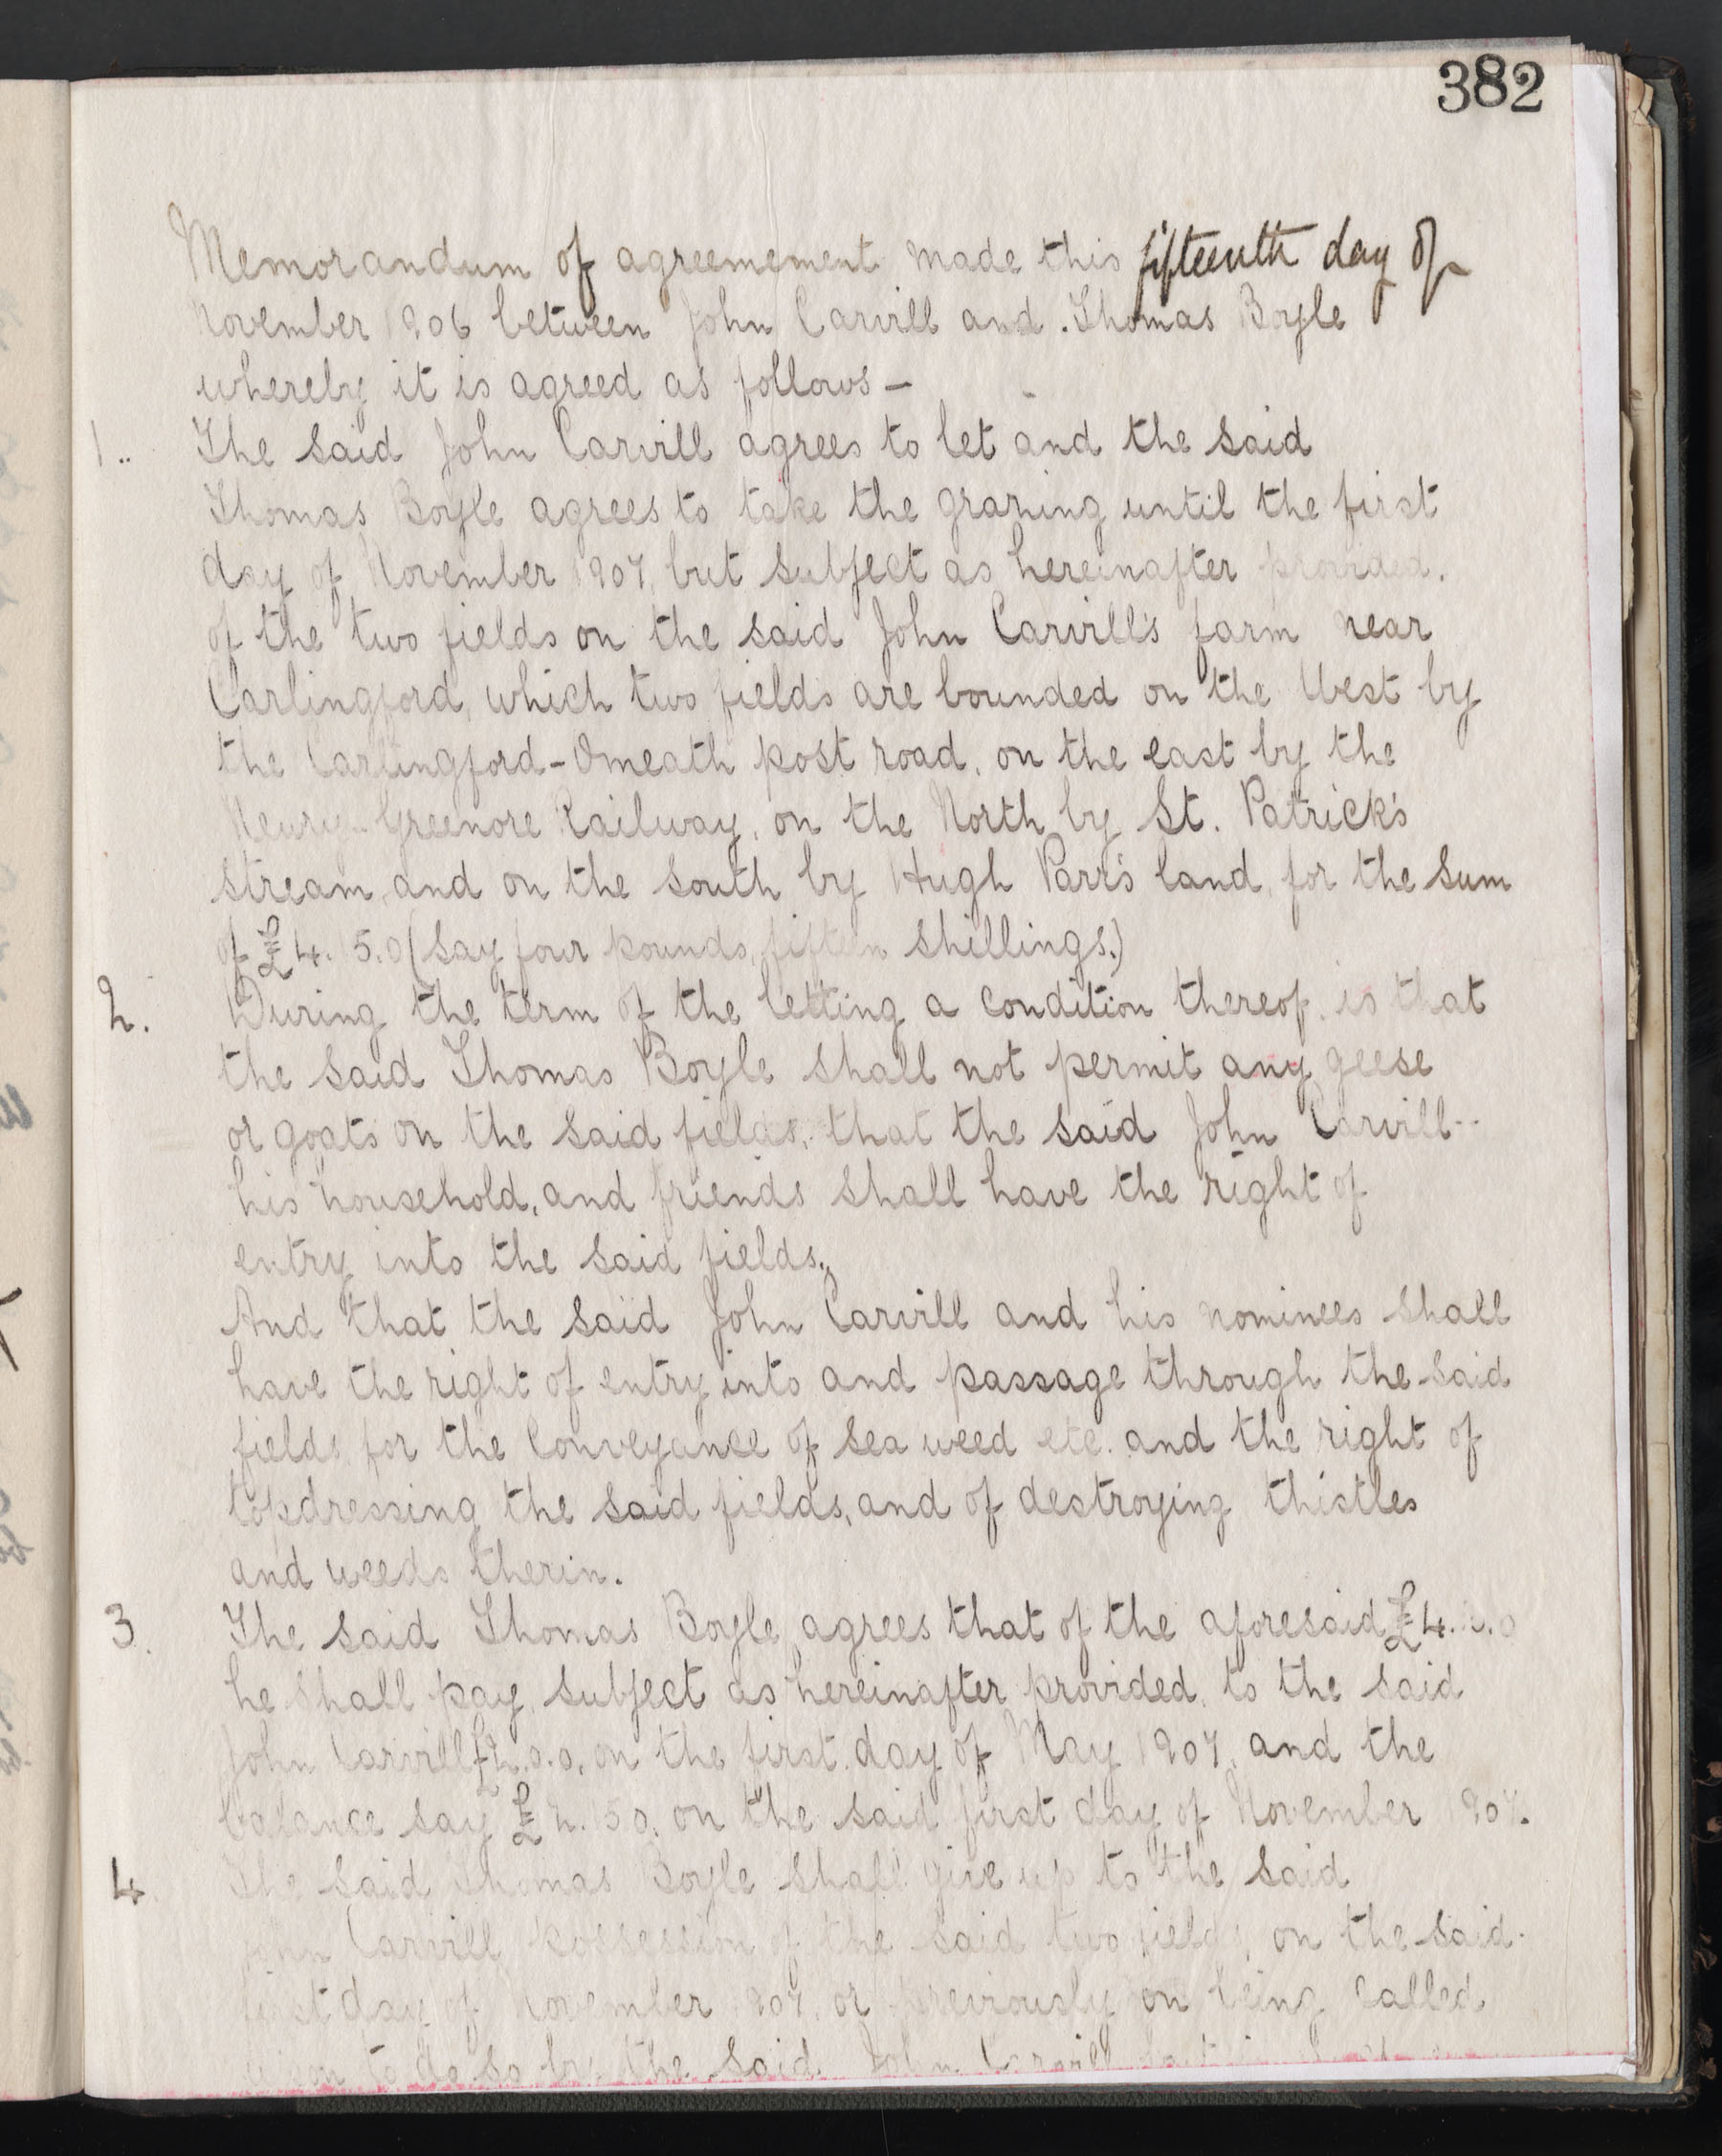 382
Memorandum of agreemement made this fifteenth day of
November 1906 between John Carvill and Thomas Boyle
whereby it is agreed as follows —
1.. The said John Carvill agrees to let and the said
Thomas Boyle agrees to take the grazing until the first
day of November 1907, but subject as hereinafter provided.
of the two fields on the said John Carvill's farm near
Carlingford, which two fields are bounded on the West by
the Carlingford-Omeath post road, on the east by the
Newry-Greenore Railway, on the North by St. Patrick's
stream, and on the south by Hugh Parr's land, for the sum
of £4.15.0 (say four pounds, fifteen shillings.)
2. During the term of the letting a condition thereof, is that
the said Thomas Boyle shall not permit any geese
or goats on the said fields, that the said John Carvill --
his household, and friends shall have the right of
entry into the said fields,
And that the said John Carvill and his nominees shall
have the right of entry into and passage through the said
fields for the conveyance of sea weed etc. and the right of
topdressing the said fields, and of destroying thistles
and weeds therin.
3. The said Thomas Boyle agrees that of the aforesaid £4.
he shall pay, subject as hereinafter provided, to the said
John Carvill £2.0.0, on the first day of May 1907, and the
balance say £2.15.0. on the said first day of November 1907.
4. The said Thomas Boyle shall give up to the said
John Carvill possession of the said two fields, on the said
first day of November 1907, or previously on being called
upon to do so by the said John Carvill